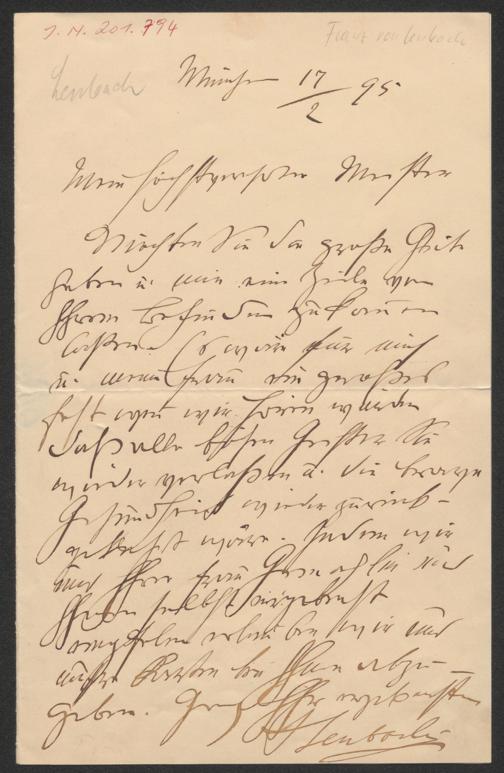 J. N. 201.794
Franz von Lenbach
Lenbach
München 17/2 95
Mein höchstverehrter Meister
Möchten Sie die große Güte
haben u. mir eine Zeile von
Ihrem Befinden zukommen
laßen. Es wäre für mich
u. meine Frau ein großes
Fest wen wir hören würden
daß alle bösen Geister Sie
wieder verlaßen u. die brave
Gesundheit wieder zurück-
gekehrt wäre. Indem wir
uns Ihrer Frau Gemahlin und
Ihnen selbst ergebenst
empfehlen erlauben wir uns
unsre Karten bei Ihnen abzu-
geben. Ihr ergebenster
Lenbach